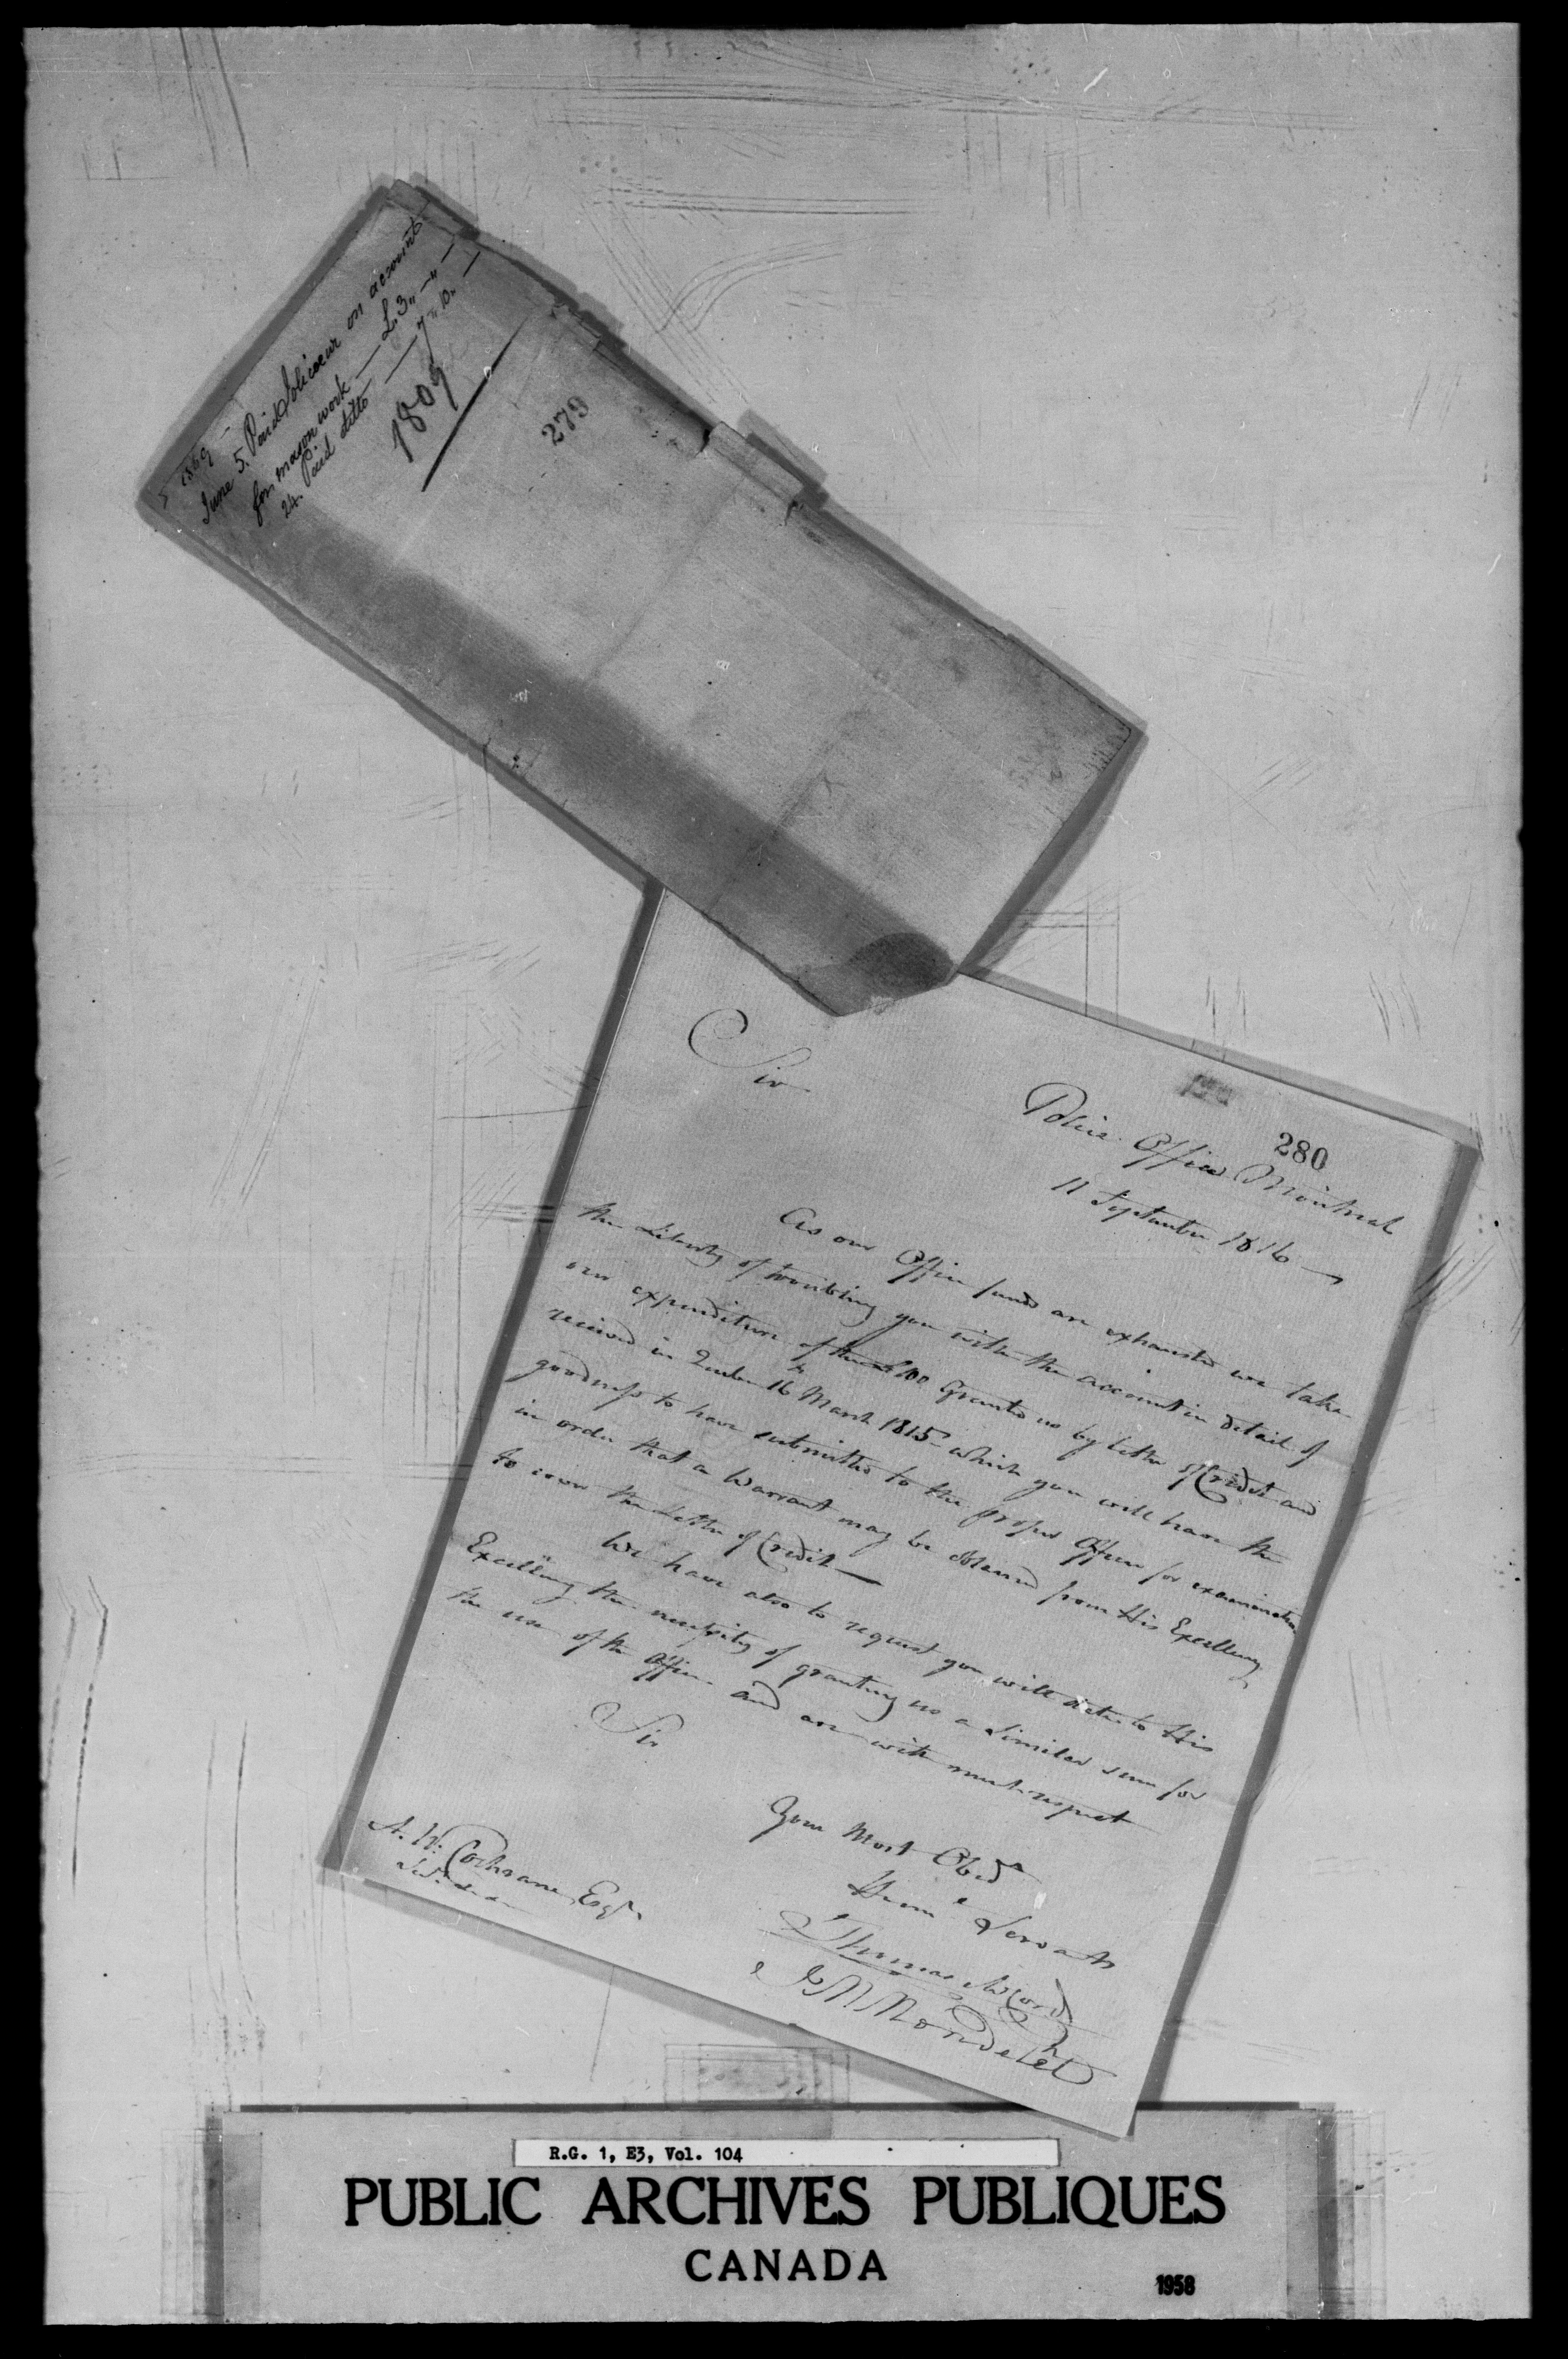 1809
June 5. Paid Jolicoeur on account
for mason work — £3 " — " —
24. Paid ditto — 7 " 10 " —
1809
279
280
Police Office Montreal
11 September 1816
Sir
As our Office funds are exhausted we take
the Liberty of troubling you with the account in detail of
our expenditure of the £100 Granted us by letter of Credit and
received in Quebec 16 March 1815 - which you will have the
goodness to have submitted to the proper Officer for examination
in order that a Warrant may be obtained from His Excellency
to cover the Letter of Credit —
We have also to request you will state to His
Excellency the necessity of granting us a similar sum for
the use of the Office and are with much respect
Sir
Your Most Obedt
Humle Servants
Thomas McCord
J M Mondelet
A. W. Cochrane Esqr
R.G. 1, E3, Vol. 104
PUBLIC ARCHIVES PUBLIQUES
CANADA
1958